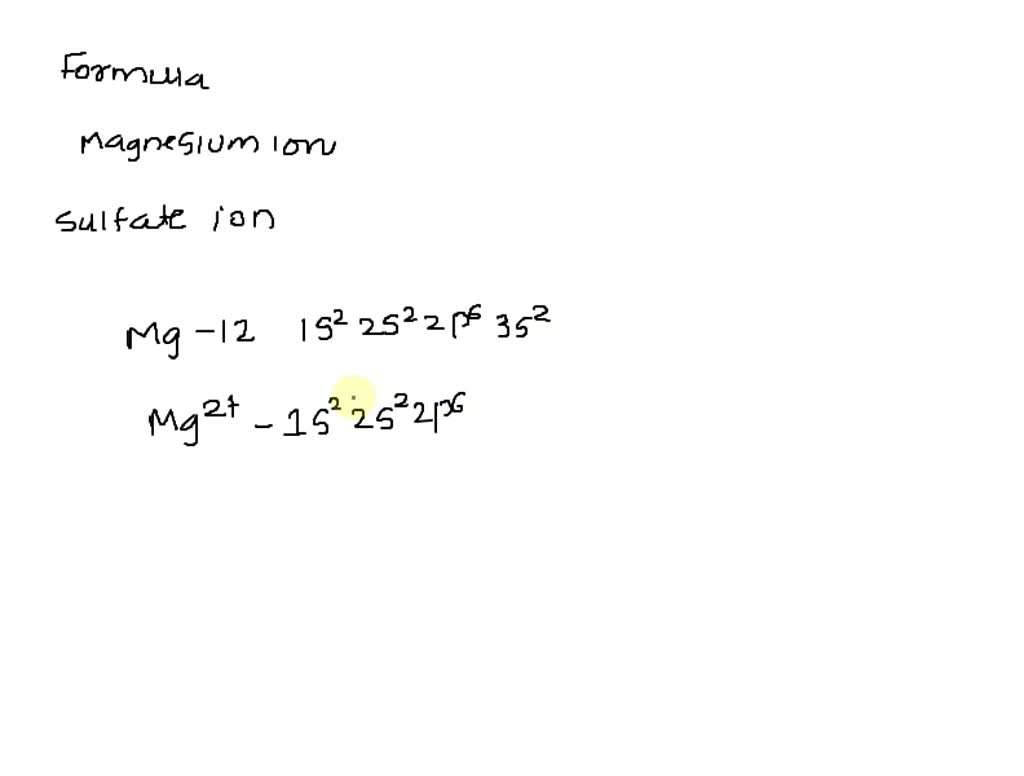 Formula
Magnesium ion
Sulfate ion
Mg - 12 1s² 2s² 2p⁶ 3s²
Mg²⁺ - 1s² 2s² 2p⁶